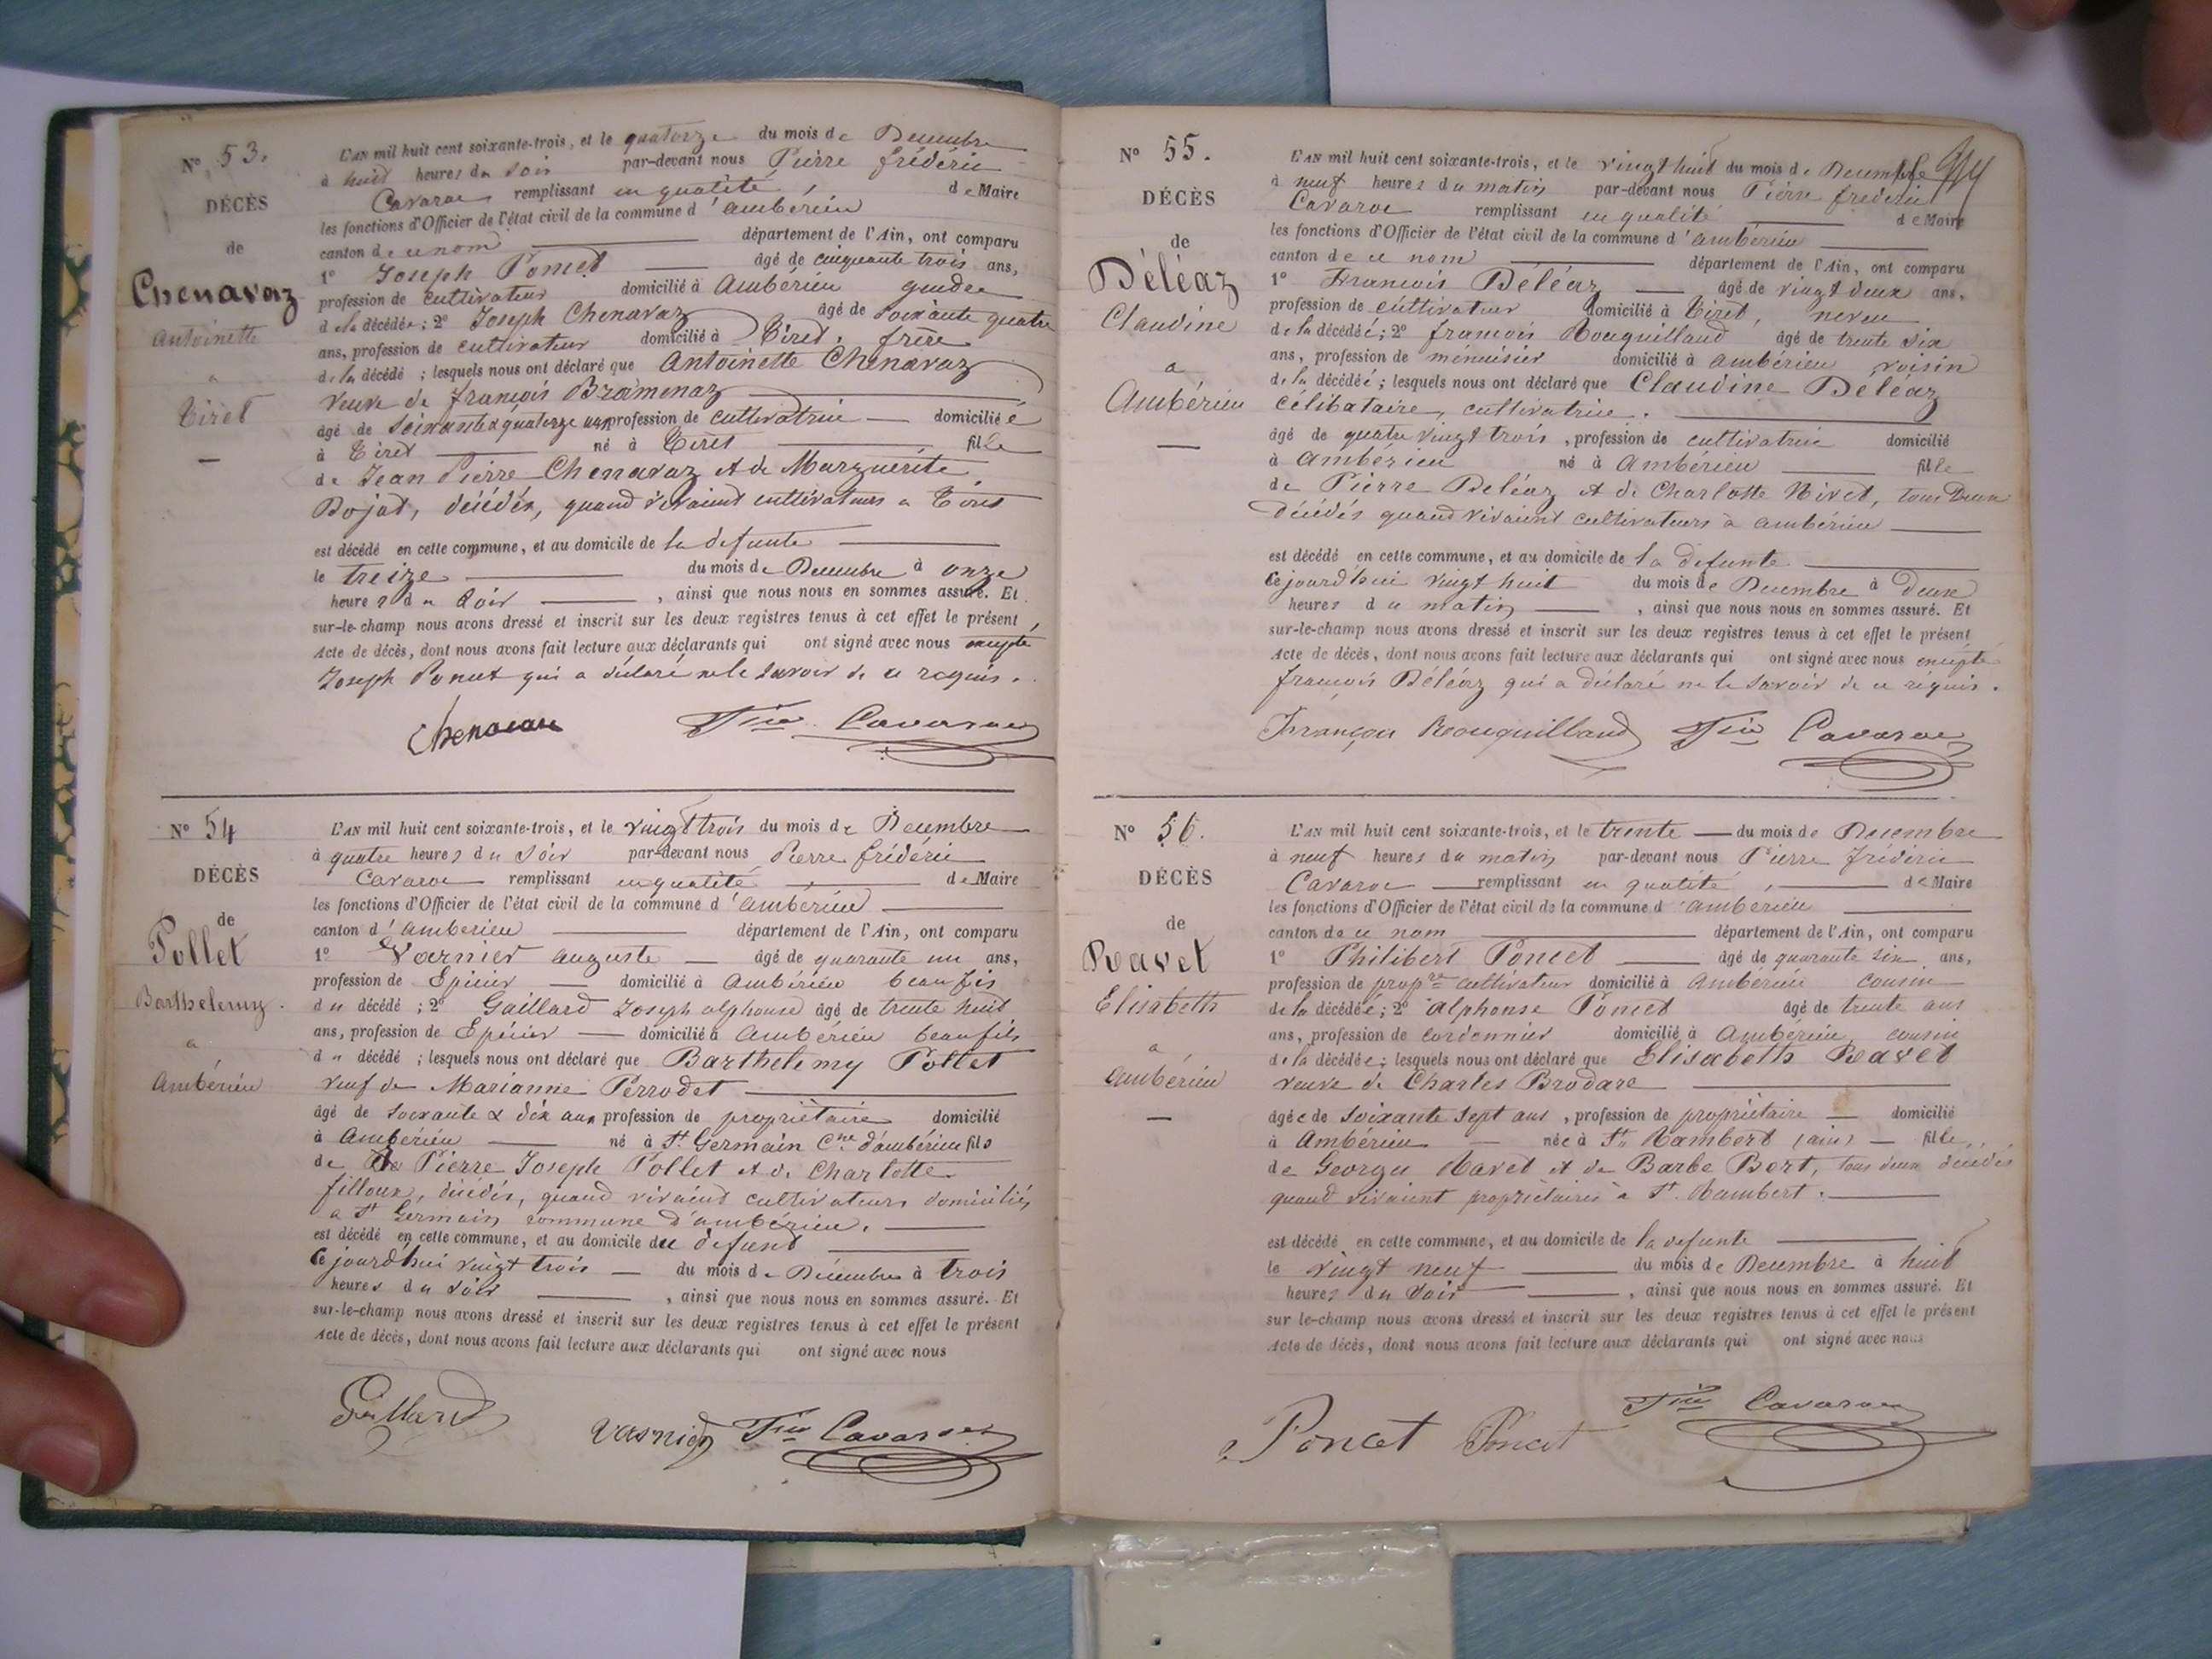 N° 53.
DÉCÈS
de
Chenavaz
Antoinette
a
Tiret
L'AN mil huit cent soixante-trois, et le quatorze du mois de Décembre
à huit heures du soir par-devant nous Pierre frédéric
Cavaroc remplissant en qualité, de Maire
les fonctions d'Officier de l'état civil de la commune d'ambérieu
canton de ce nom département de l'Ain, ont comparu
1° Joseph Poncet âgé de cinquante trois ans,
profession de cultivateur domicilié à Ambérieu gendre
de la décédée; 2° Joseph Chenavaz âgé de soixante quatre
ans, profession de cultivateur domicilié à Tiret, frère
de la décédé ; lesquels nous ont déclaré que Antoinette Chenavaz
veuve de françois Bramenaz
âgé de soixante & quatorze ans profession de cultivatrice domicilié e
à Tiret né à Tiret fille
de Jean Pierre Chenavaz et de Marguerite
Bojat, décédés, quand vivaient cultivateurs a Tiret
est décédé en cette commune, et au domicile de la defunte
le treize du mois de Décembre à onze
heures du soir , ainsi que nous nous en sommes assuré. Et
sur-le-champ nous avons dressé et inscrit sur les deux registres tenus à cet effet le présent
Acte de décès, dont nous avons fait lecture aux déclarants qui ont signé avec nous excepté
Joseph Poncet qui a déclaré ne le savoir de ce requis.
Chenavaz Fric Cavaroc
N° 54
DÉCÈS
de
Pollet
Barthelemy.
a
Ambérieu
L'AN mil huit cent soixante-trois, et le vingt trois du mois de Décembre
à quatre heures du soir par-devant nous Pierre frédéric
Cavaroc remplissant en qualité de Maire
les fonctions d'Officier de l'état civil de la commune d'ambérieu
canton d'amberieu département de l'Ain, ont comparu
1° Varnier auguste âgé de quarante un ans,
profession de Epicier domicilié à Ambérieu beau fis
du décédé ; 2° Gaillard Joseph alphonse âgé de trente huit
ans, profession de Epicier domicilié à Ambérieu beau fils
du décédé ; lesquels nous ont déclaré que Barthelemy Pollet
veuf de Marianne Perrodet
âgé de soixante & dix ans profession de propriétaire domicilié
à Ambérieu né à St. Germain Cne d'ambérieu fils
de Pierre Joseph Pollet et de Charlotte
filloux, décédés, quand vivaient cultivateurs domiciliés
a St Germain commune d'ambérieu.
est décédé en cette commune, et au domicile du défunt
Ce jourd'hui vingt trois du mois de Décembre à trois
heures du soir , ainsi que nous nous en sommes assuré. Et
sur-le-champ nous avons dressé et inscrit sur les deux registres tenus à cet effet le présent
Acte de décès, dont nous avons fait lecture aux déclarants qui ont signé avec nous
Gaillard
Varnier Fric Cavaroc
N° 55.
DÉCÈS
de
Déléaz
Claudine
a
Ambérieu
L'AN mil huit cent soixante-trois, et le vingt huit du mois de Décembre
à neuf heures du matin par-devant nous Pierre frédéric
Cavaroc remplissant en qualité de Maire
les fonctions d'Officier de l'état civil de la commune d'ambérieu
canton de ce nom département de l'Ain, ont comparu
1° François Déléaz âgé de vingt deux ans,
profession de cultivateur domicilié à Tiret, neveu
de la décédée; 2° françois Rouquilland âgé de trente six
ans, profession de menuisier domicilié à ambérieu voisin
de la décédée; lesquels nous ont déclaré que Claudine Déléaz
célibataire, cultivatrice.
âgé de quatre vingt trois, profession de cultivatrice domicilié
à Ambérieu né à Ambérieu fille
de Pierre Déléaz et de Charlotte Nivet, tous Deux
décédés quand vivaient cultivateurs à ambérieu
est décédé en cette commune, et au domicile de la defunte
Ce jourd'hui vingt huit du mois de Décembre à Deux
heures du matin , ainsi que nous nous en sommes assuré. Et
sur-le-champ nous avons dressé et inscrit sur les deux registres tenus à cet effet le présent
Acte de décès, dont nous avons fait lecture aux déclarants qui ont signé avec nous excepté
françois Déléaz qui a déclaré ne le savoir de ce requis.
François Rouquilland Fric Cavaroc
N° 56.
DÉCÈS
de
Ravet
Elisabeth
a
Ambérieu
L'AN mil huit cent soixante-trois, et le trente du mois de Décembre
à neuf heures du matin par-devant nous Pierre frédéric
Cavaroc remplissant en qualité, de Maire
les fonctions d'Officier de l'état civil de la commune d'ambérieu
canton de ce nom département de l'Ain, ont comparu
1° Philibert Poncet âgé de quarante six ans,
profession de propre cultivateur domicilié à Ambérieu cousin
de la décédée; 2° alphonse Poncet âgé de trente ans
ans, profession de cordonnier domicilié à Ambérieu, cousin
de la décédée; lesquels nous ont déclaré que Elisabeth Ravet
veuve de Charles Brodare
âgée de soixante sept ans, profession de propriétaire domicilié
à Ambérieu née à St. Rambert (ain) fille
de George Ravet et de Barbe Bert, tous deux décédés
quand vivaient propriétaires à St. Rambert.
est décédé en cette commune, et au domicile de la defunte
le vingt neuf du mois de Décembre à huit
heures du soir , ainsi que nous nous en sommes assuré. Et
sur le-champ nous avons dressé et inscrit sur les deux registres tenus à cet effet le présent
Acte de décès, dont nous avons fait lecture aux déclarants qui ont signé avec nous
Poncet Poncet Fric Cavaroc